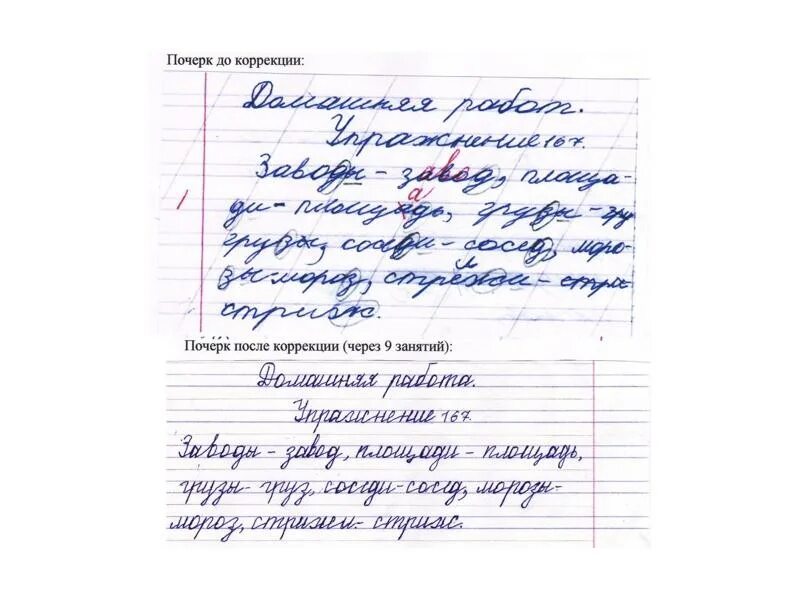 Почерк до коррекции:
Домашняя работ.
Упражнение 167.
Заводы - завод, площа-
ди - площадь, грузы - гру
грузы, соседи - сосед, моро-
зы-мороз, стрежи - стри
стриж.
Почерк после коррекции (через 9 занятий):
Домашняя работа.
Упражнение 167.
Заводы - завод, площади - площадь,
грузы - груз, соседи-сосед, морозы-
мороз, стрижи - стриж.